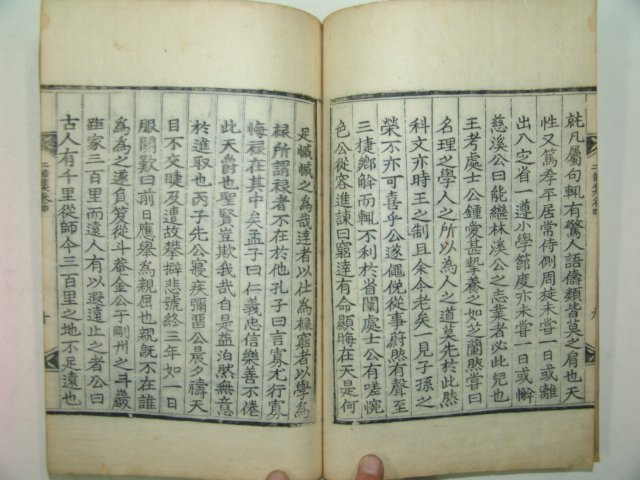 就凡屬句輒有驚人語儔類皆莫之肩也天
性又篤孝平居嘗侍側周旋未嘗一日或離
出入定省一遵小學節度亦未嘗一日或懈
慈溪公曰能繼林溪公之志業者必此兒也
王考處士公鍾愛甚摯養之如芝蘭然嘗曰
名理之學人之所以為人之道莫先於此然
科文亦時王之制且余今老矣一見子孫之
榮不亦可喜乎公遂僶俛從事蔚然有聲至
三捷鄉解而輒不利於省闈處士公有嗟惋
色公從容進諫曰窮達有命顯晦在天是何
足慽慽之為哉達者以仕為祿窮者以學為
祿所謂祿者不在於他孔子曰言寡尤行寡
悔祿在其中矣孟子曰仁義忠信樂善不倦
此天爵也聖賢豈欺我哉自是益泊然無意
於進取也丙子先公寢疾彌留公晨夕禱天
目不交睫及遭故攀擗悲號終三年如一日
服闋歎曰前日應舉為親屈也親旣不在誰
為為之遂負笈從斗菴金公于剛州之斗巖
距家三百里而遠人有以遐遠止之者公曰
古人有千里從師今三百里之地不足遠也